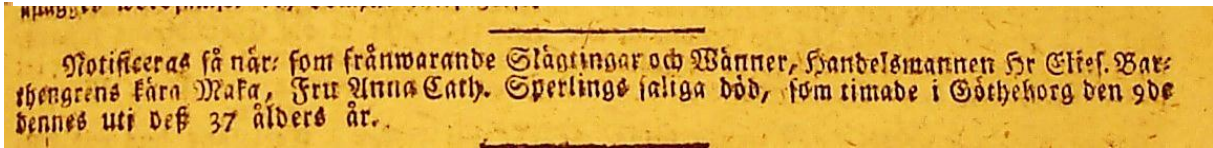 Notificeras så när- som frånwarande Slägtingar och Wänner, Handelsmannen Hr Elies. Bar-
thengrens kära Maka, Fru Anna Cath. Sperlings saliga död, som timade i Götheborg den 9de
dennes uti deß 37 ålders år.